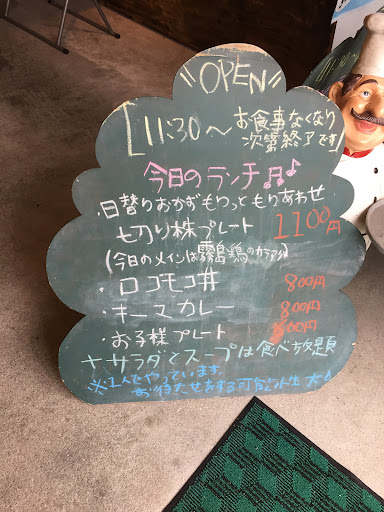 "OPEN"
[11:30〜お食事なくなり
次第終了です]
今日のランチ♬♪
・日替りおかずもりっともりあわせ
切り株プレート 1100円
(今日のメインは霧島鶏のカラアゲ)
・ロコモコ丼 800円
・キーマカレー 800円
・お子様プレート 600円
+サラダとスープは食べ放題
※1人でやっています
お待たせをする可能性大